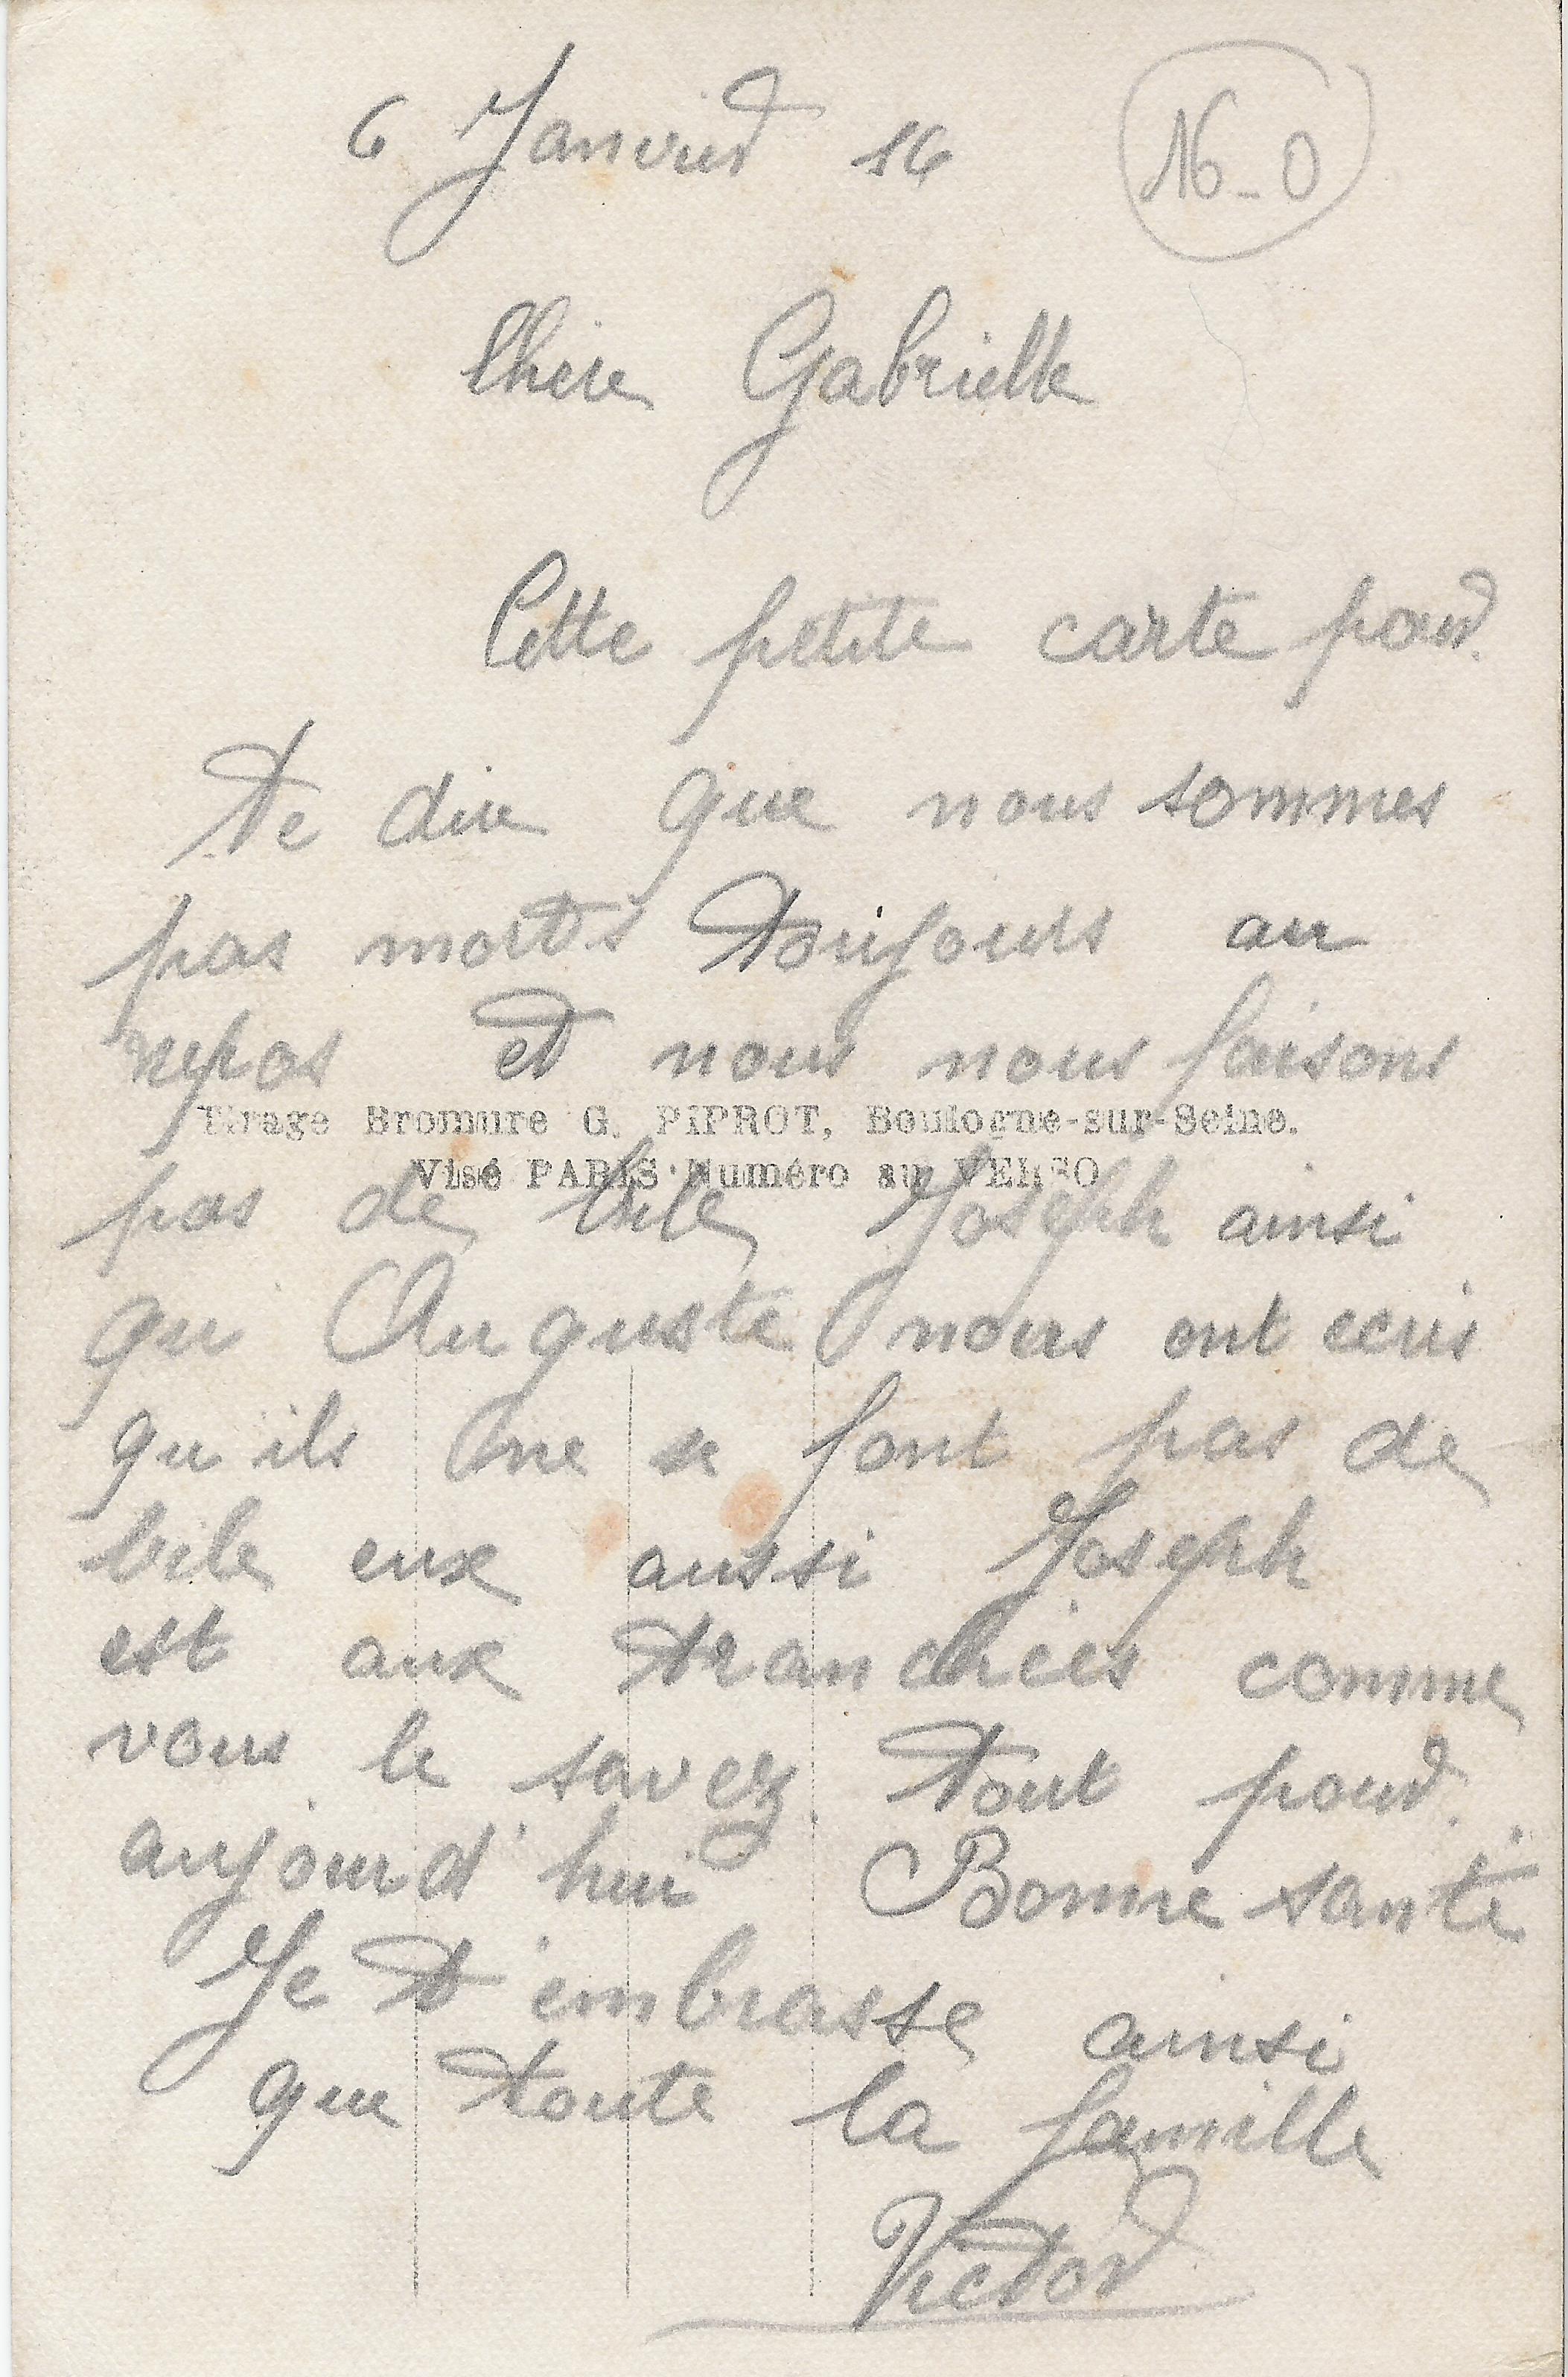 6 Janvier 16
16-0
Chere Gabrielle
Cette petite carte pour
te dire que nous sommes
pas morts toujours au
repos et nous nous faisons
Tirage Bromure G. PIPROT, Boulogne-sur-Seine.
Visé PARIS·Numéro au VERSO
pas de bile Joseph ainsi
qu' Auguste nous ont ecris
qu'ils ne se font pas de
bile eux aussi Joseph
est aux tranchées comme
vous le savez. Tout pour
aujourd'hui Bonne santé
Je t'embrasse ainsi
que toute la famille
Victor